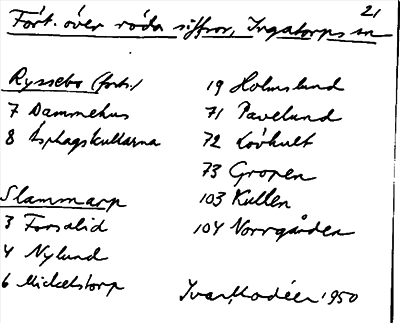 21
Fört. över röda siffror, Ingatorps sn
Ryssebo (forts.)
7 Dammehus
8 Asphagskullarna
Slammarp
3 Forsalid
4 Nylund
6 Mickelstorp
19 Holmslund
71 Pavelund
72 Lövhult
73 Gropen
103 Kullen
104 Norrgården
Ivar Modéer 1950